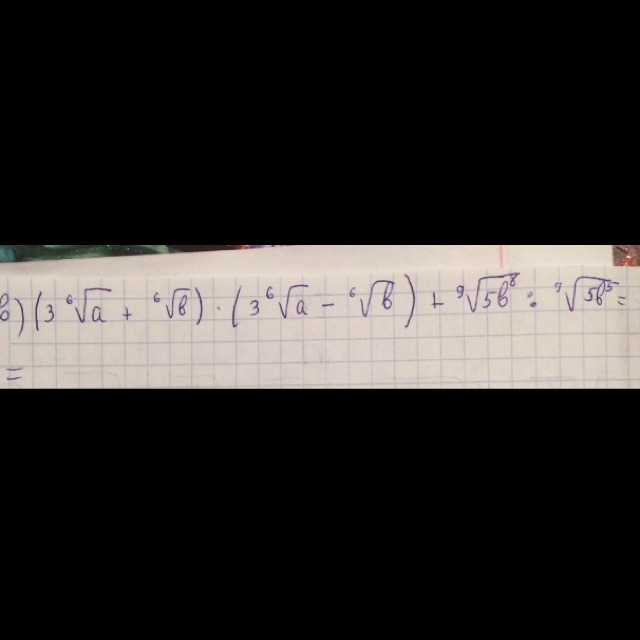 в) (3 ⁶√a + ⁶√b) · (3 ⁶√a − ⁶√b) + ⁹√5b⁸ : ⁹√5b⁵ =
=